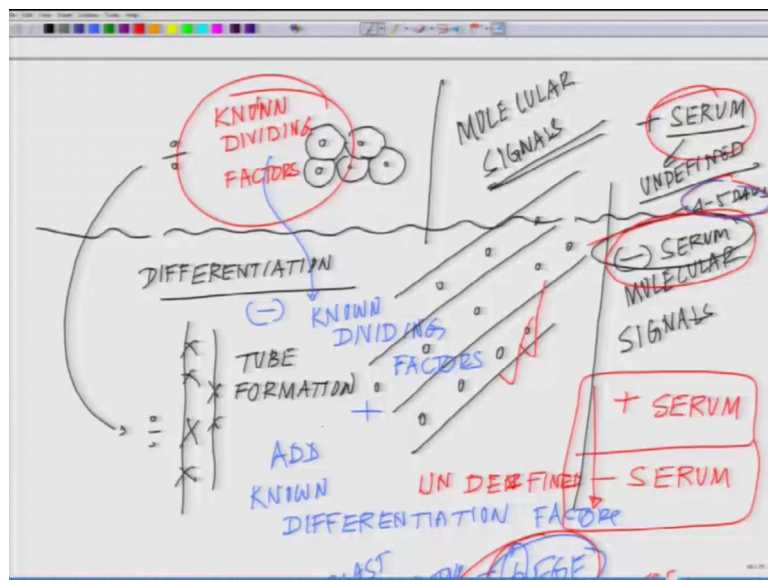 KNOWN
DIVIDING
FACTORS
MOLECULAR
SIGNALS
+ SERUM
UNDEFINED
4-5 DAYS
DIFFERENTIATION
(-) KNOWN
DIVIDING
FACTORS
(-) SERUM
MOLECULAR
SIGNALS
TUBE
FORMATION
+
ADD
KNOWN
DIFFERENTIATION FACTORS
UNDEFINED
+ SERUM
- SERUM